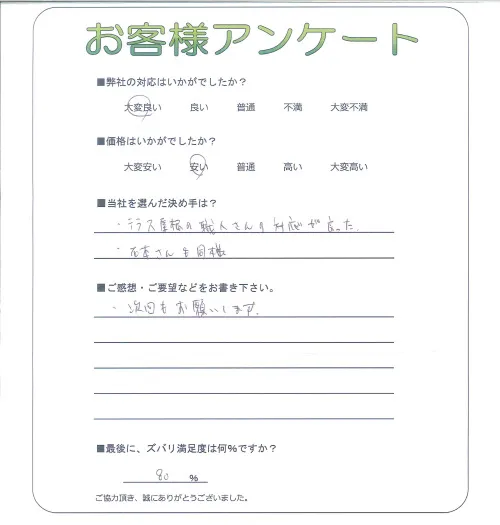 お客様アンケート
■弊社の対応はいかがでしたか？
大変良い 良い 普通 不満 大変不満
■価格はいかがでしたか？
大変安い 安い 普通 高い 大変高い
■当社を選んだ決め手は？
・テラス屋根の職人さんの対応が良った。
・さんも同様
■ご感想・ご要望などをお書き下さい。
・次回もお願いします。
■最後に、ズバリ満足度は何％ですか？
80 %
ご協力頂き、誠にありがとうございました。